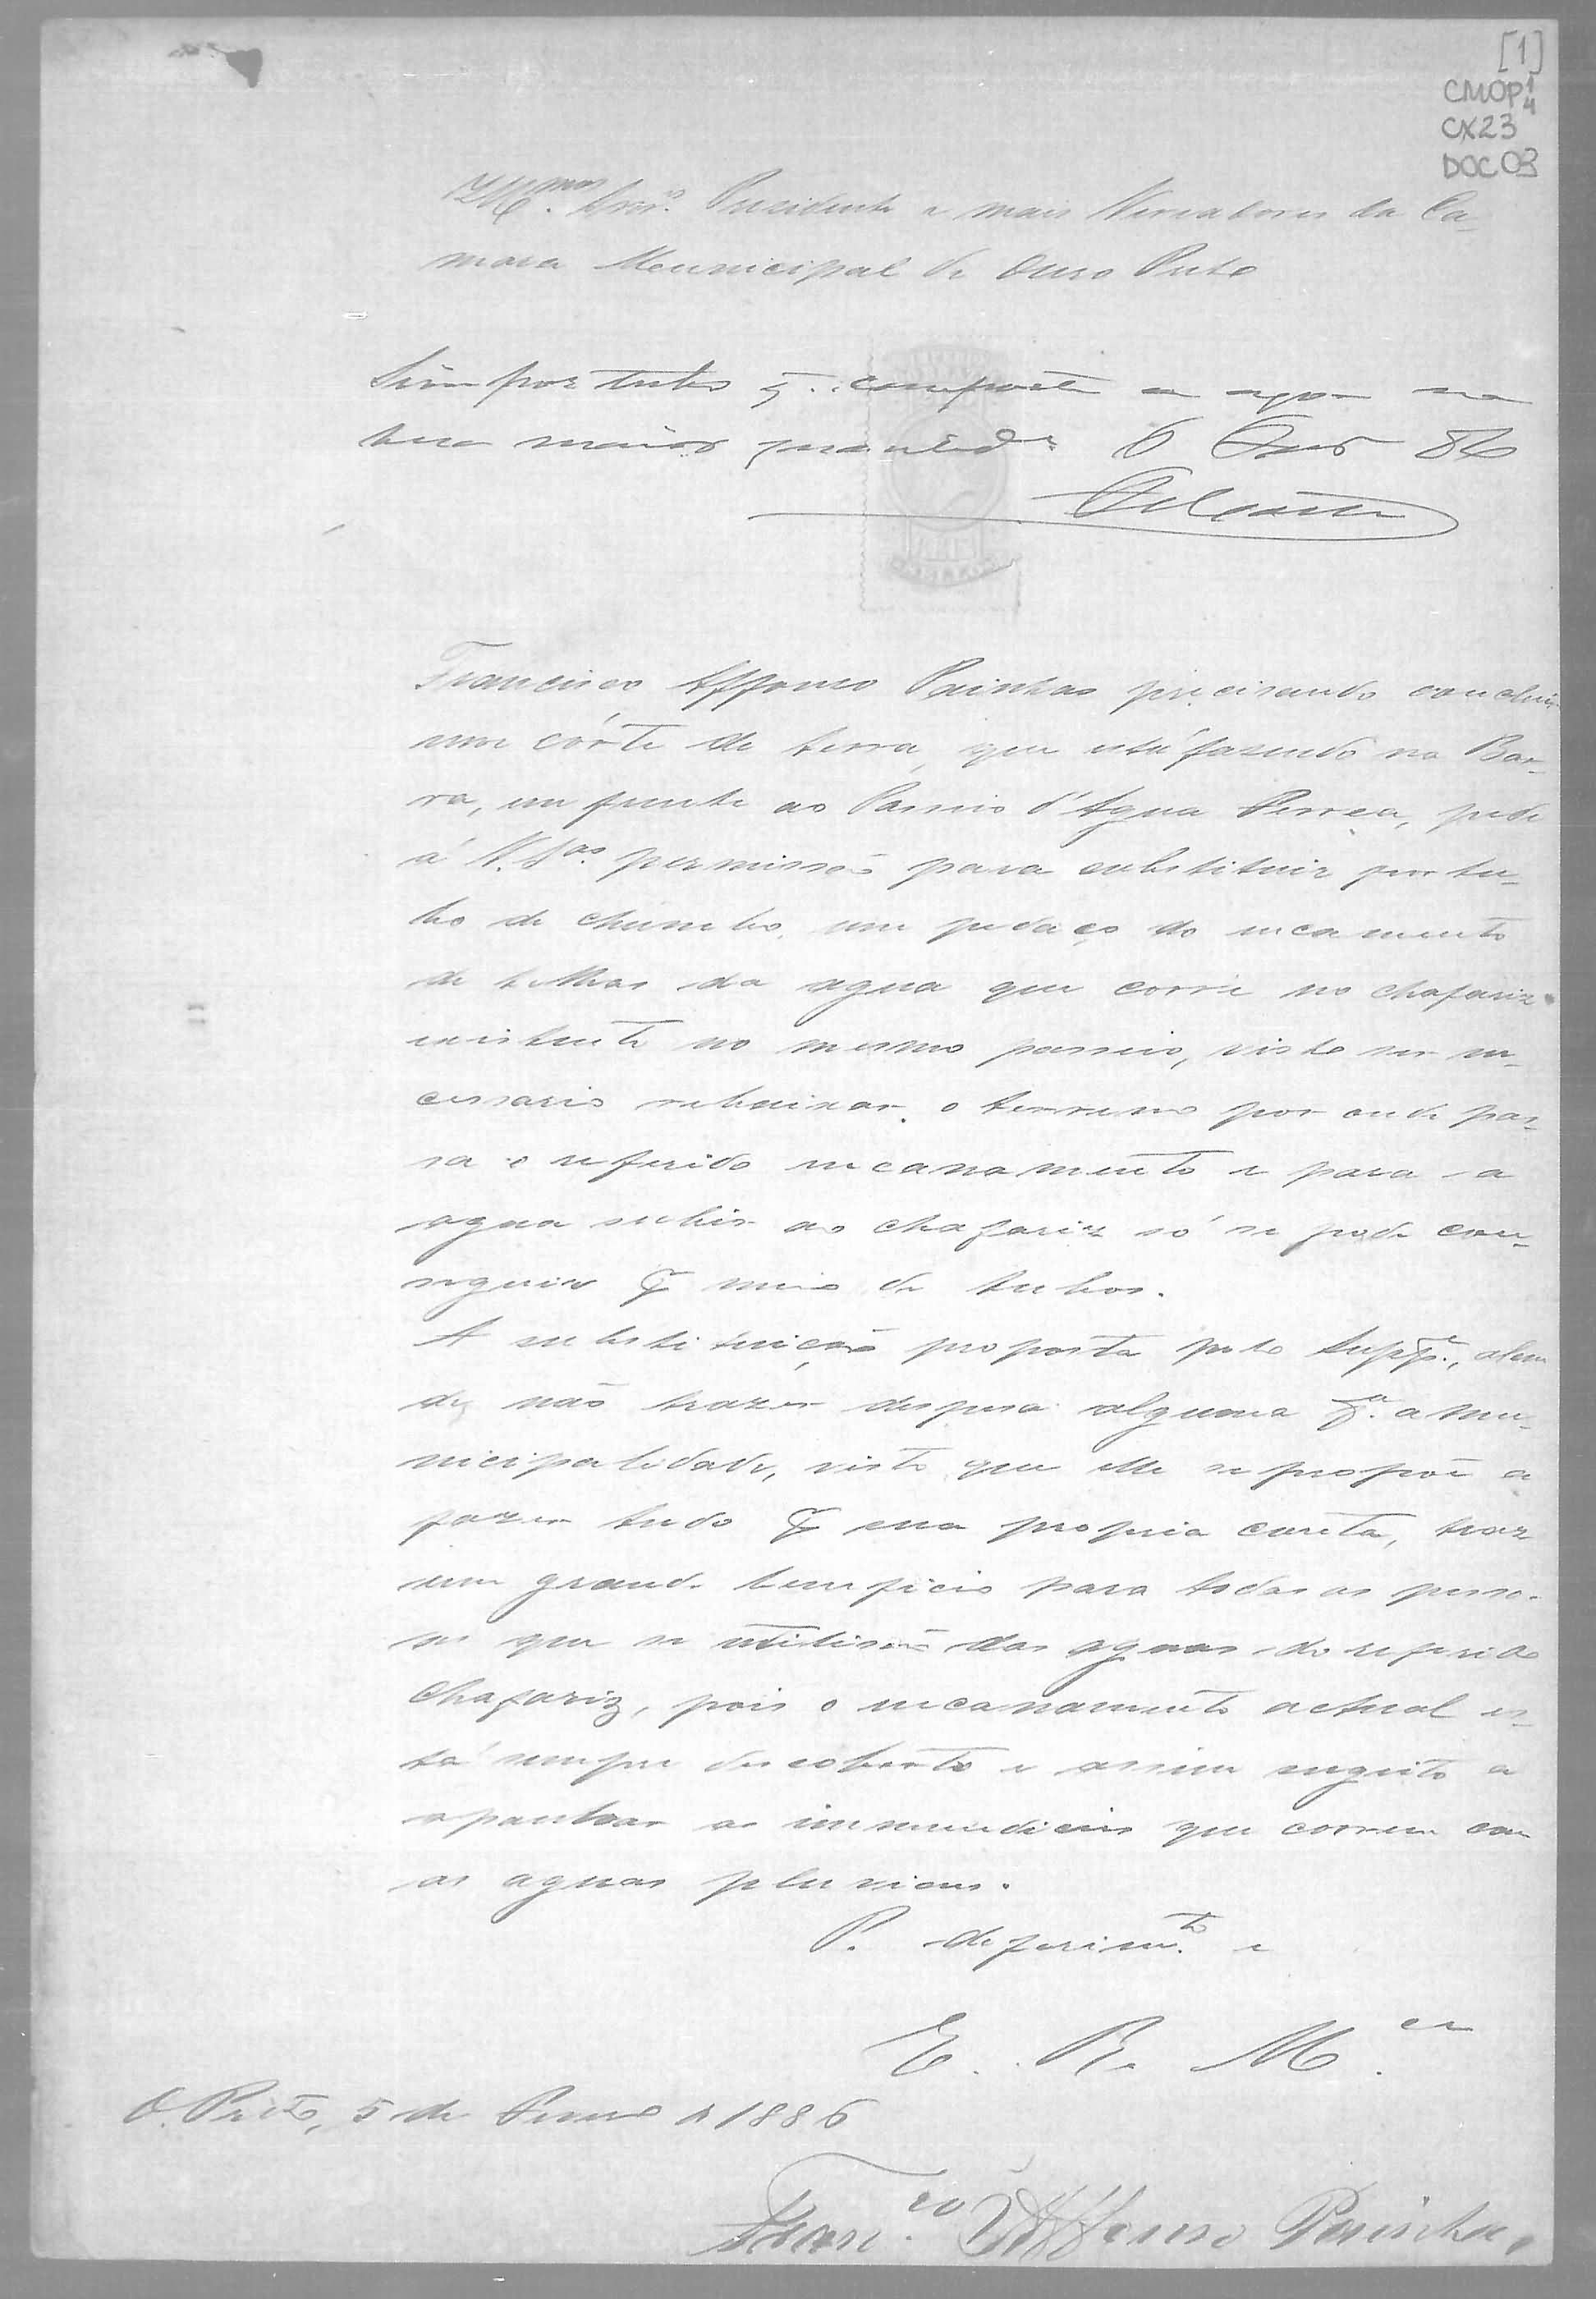 [1]
CMOP 1/4
CX23
DOC 03
Ill.mos Snr.es Presidente e mais Vereadores da Ca-
mara Municipal de Ouro Preto
Sim por tubos q. comporte a agua na
sua maior 6 86
Francisco Affonso Painhas precisando concluir
um córte de terra, que está fazendo na Bar-
ra, em frente ao Passeio d'Agua Ferrea, pede
á V. S.as permissão para substituir por tu-
bo de chumbo, um pedaço do encamento
de telhas da agua que corre no chafariz
existente no mesmo passeio, visto ser ne-
cessario rebaixar o terreno por onde pas-
sa o referido encanamento e para a
agua subir ao chafariz só se pode con-
seguir p. meio de tubos.
A substituição proposta pelo Supp.e, alem
de não trazer despesa alguma p.a a mu-
nicipalidade, visto que elle se propõe a
fazer tudo p. sua propria conta, traz
um grande beneficio para todas as pesso-
as que se utilisão das aguas do referido
chafariz, pois o encanamento actual es-
tá sempre descoberto e assim sugeito a
apanhar as immundicies que correm com
as aguas pluviaes.
P. deferim.to e
E. R. M.ce
O. Preto, 5 de de 1886
Fran.co Affonso Painhas